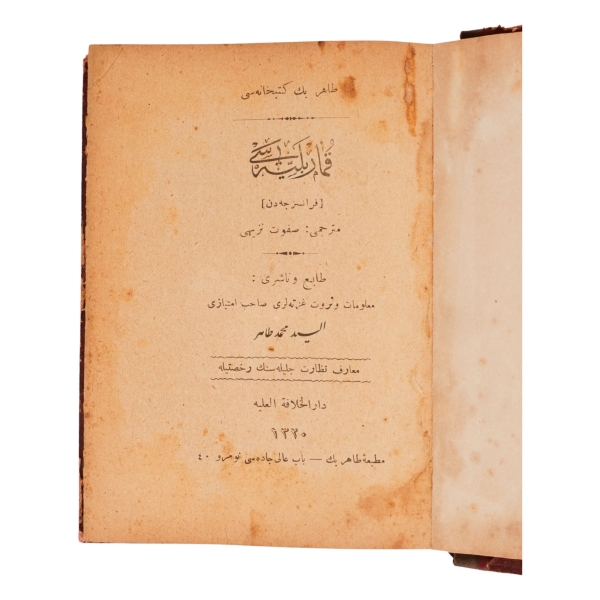 طاهر بك كتبخانه‌سی
قمار بلیه‌سی
[فرانسزجه‌دن]
مترجمی: صفوت نزیهی
طابع و ناشری :
معلومات و ثروت غزته‌لری صاحب امتیازی
السید محمد طاهر
معارف نظارت جلیله‌سنك رخصتیله
دار الخلافة العلیه
١٣٢٠
مطبعهٔ طاهر بك — باب عالی جاده‌سی نومرو ٤٠